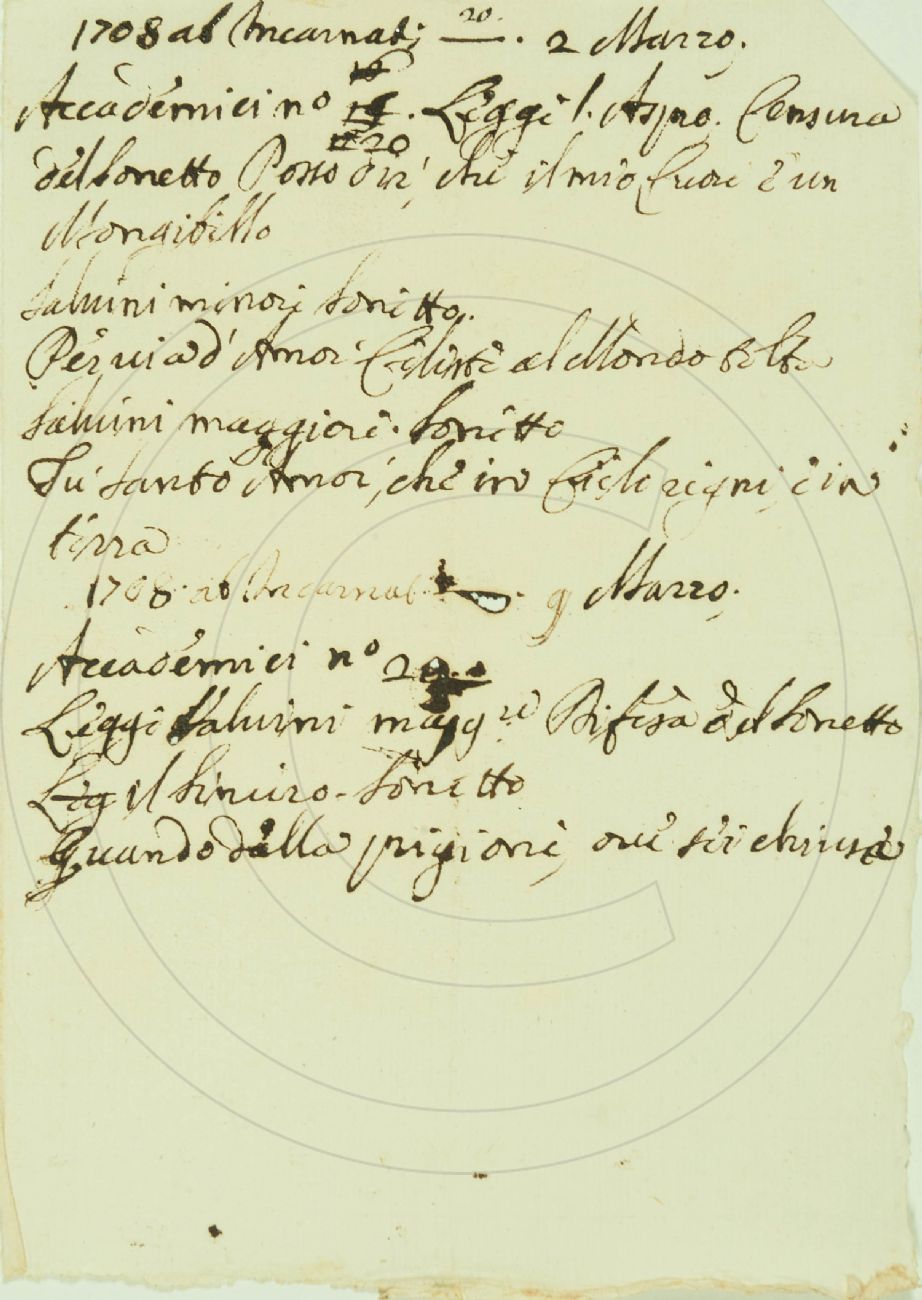 1708 ab Incarnat: 20. 2 Marzo.
Accademici nº 19. Leggè l'Aspro. Censura
20
del sonetto Posso dir, che il mio Cuore è un
Mongibello
Salvini minore sonetto.
Per via d'Amor Celeste al Mondo
Salvini maggiore. Sonetto
Tu santo Amor, che in Cielo regni, e in
terra
1708 ab Incarnat 9 Marzo.
Accademici nº 20.
Legge Salvini magg.re Difesa del Sonetto
Leg il Sincero. Sonetto
Quando dalla prigione, ove sei chiusa